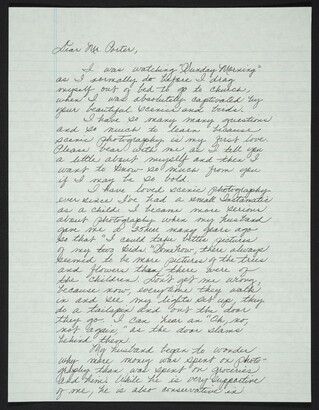 Dear Mr Porter,
I was watching "Sunday Morning"
as I normally do before I drag
myself out of bed to go to church,
when I was absolutely captivated by
your beautiful scenics and birds.
I have so many many questions
and so much to learn because
scenic photography is my first love.
Please bear with me as I tell you
a little about myself and then I
want to know so much from you
if I may be so bold.
I have loved scenic photography
ever since I've had a small Instamatic
as a child. I became more serious
about photography when my husband
gave me a 35mm many years ago
so that "I could take better pictures
of my two kids." Somehow, there always
seemed to be more pictures of the trees
and flowers than there were of
the children. Don't get me wrong
because now everytime they walk
in and see my lights set up, they
do a tailspin and out the door
they go. I can hear an "Oh, no,
not again," as the door slams
behind them.
My husband began to wonder
why more money was spent on photo-
graphy than was spent on groceries
and him. While he is very supportive
of me, he is also conservative in